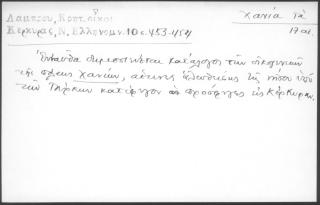 Λάμπρου, Κρητικοὶ
Κερκύρας, Ν. Ελληνομν. 10 σ. 453-454
Χανιά τὰ
17 αἰ.
Ἐνταῦθα δημοσιεύεται κατάλογος τῶν οἰκογενειῶν
τῆς πόλεως Χανίων, αἵτινες τῆς νήσου ὑπὸ
τῶν Τούρκων κατέφυγον ὡς πρόσφυγες εἰς Κέρκυραν.